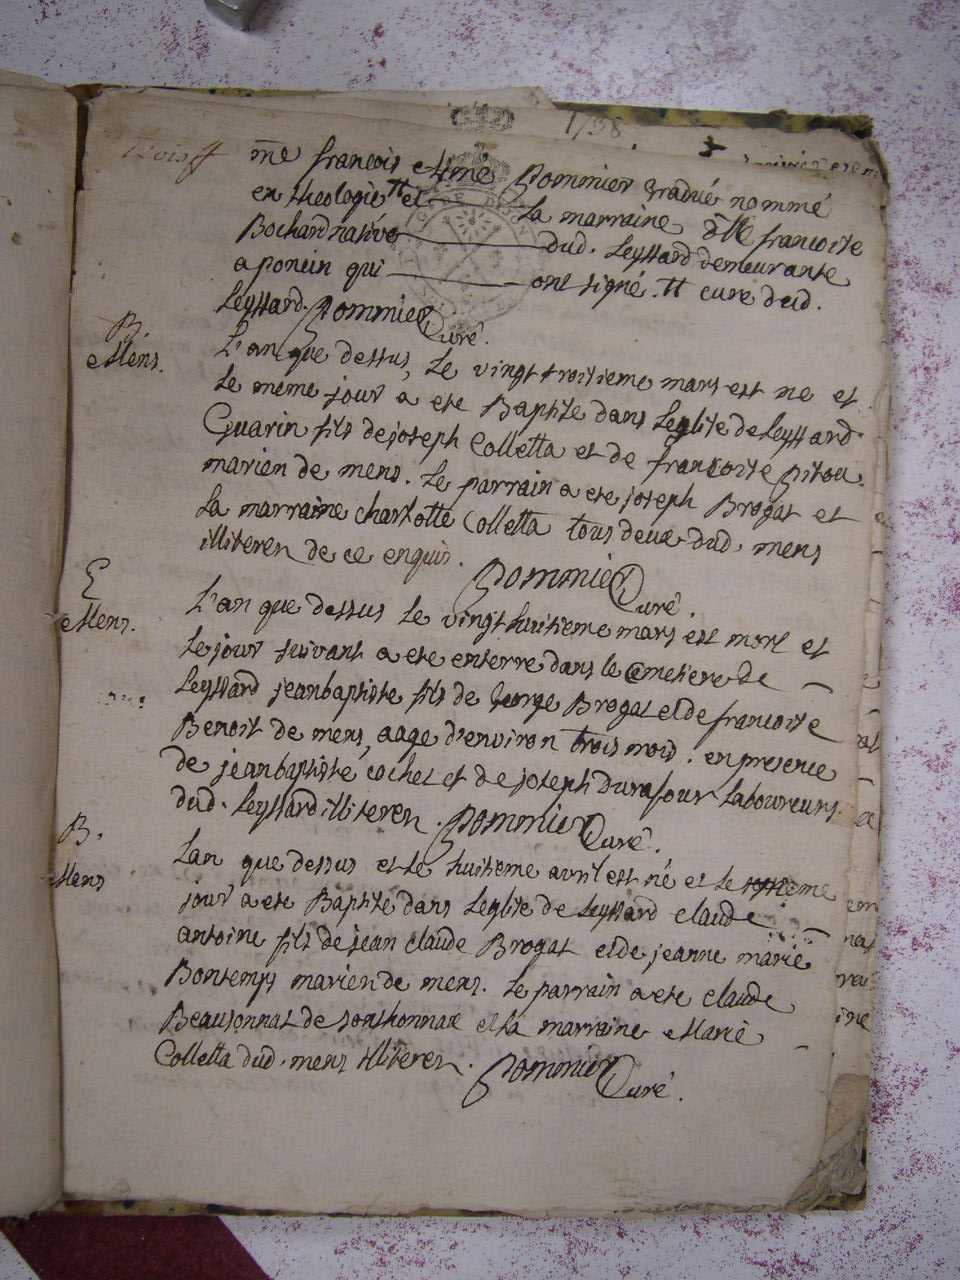 1738
me francois Aimé Pommier gradué nommé
en theologie et la marraine dlle francoise
Bochard native dud. Leyssard demeurante
a poncin qui ont signé. curé dud.
Leyssard. Pommier Curé.
B.
Mens.
L'an que dessus, Le vingt troisieme mars est ne et
Le meme jour a ete Baptise dans Leglise de Leyssard.
Guarin fils de joseph Colletta et de francoise pitou
marien de mens. Le parrain a ete joseph Brogat et
La marraine charlotte Colletta tous deux dud. mens
illiteren de ce enquis.
Pommier Curé.
E
Mens.
L'an que dessus Le vingt huitieme mars est mort et
Le jour suivant a ete enterre dans le cemetiere de
Leyssard jeanbaptiste fils de George Brogat et de francoise
Benoit de mens, aage d'environ trois mois. en presence
de jeanbaptiste cochet et de joseph Durafour Laboureurs.
dud. Leyssard illiteren. Pommier Curé.
B.
Mens
Lan que dessus et le huitieme avril est né et le
jour a ete Baptisé dans Leglise de Leyssard claude
antoine fils de jean claude Brogat et de jeanne marie
Bontemps marien de mens. Le parrain a ete claude
Beausonnat de sonthonnax et la marraine Marie
Colletta dud. mens illiteren.
Pommier Curé.